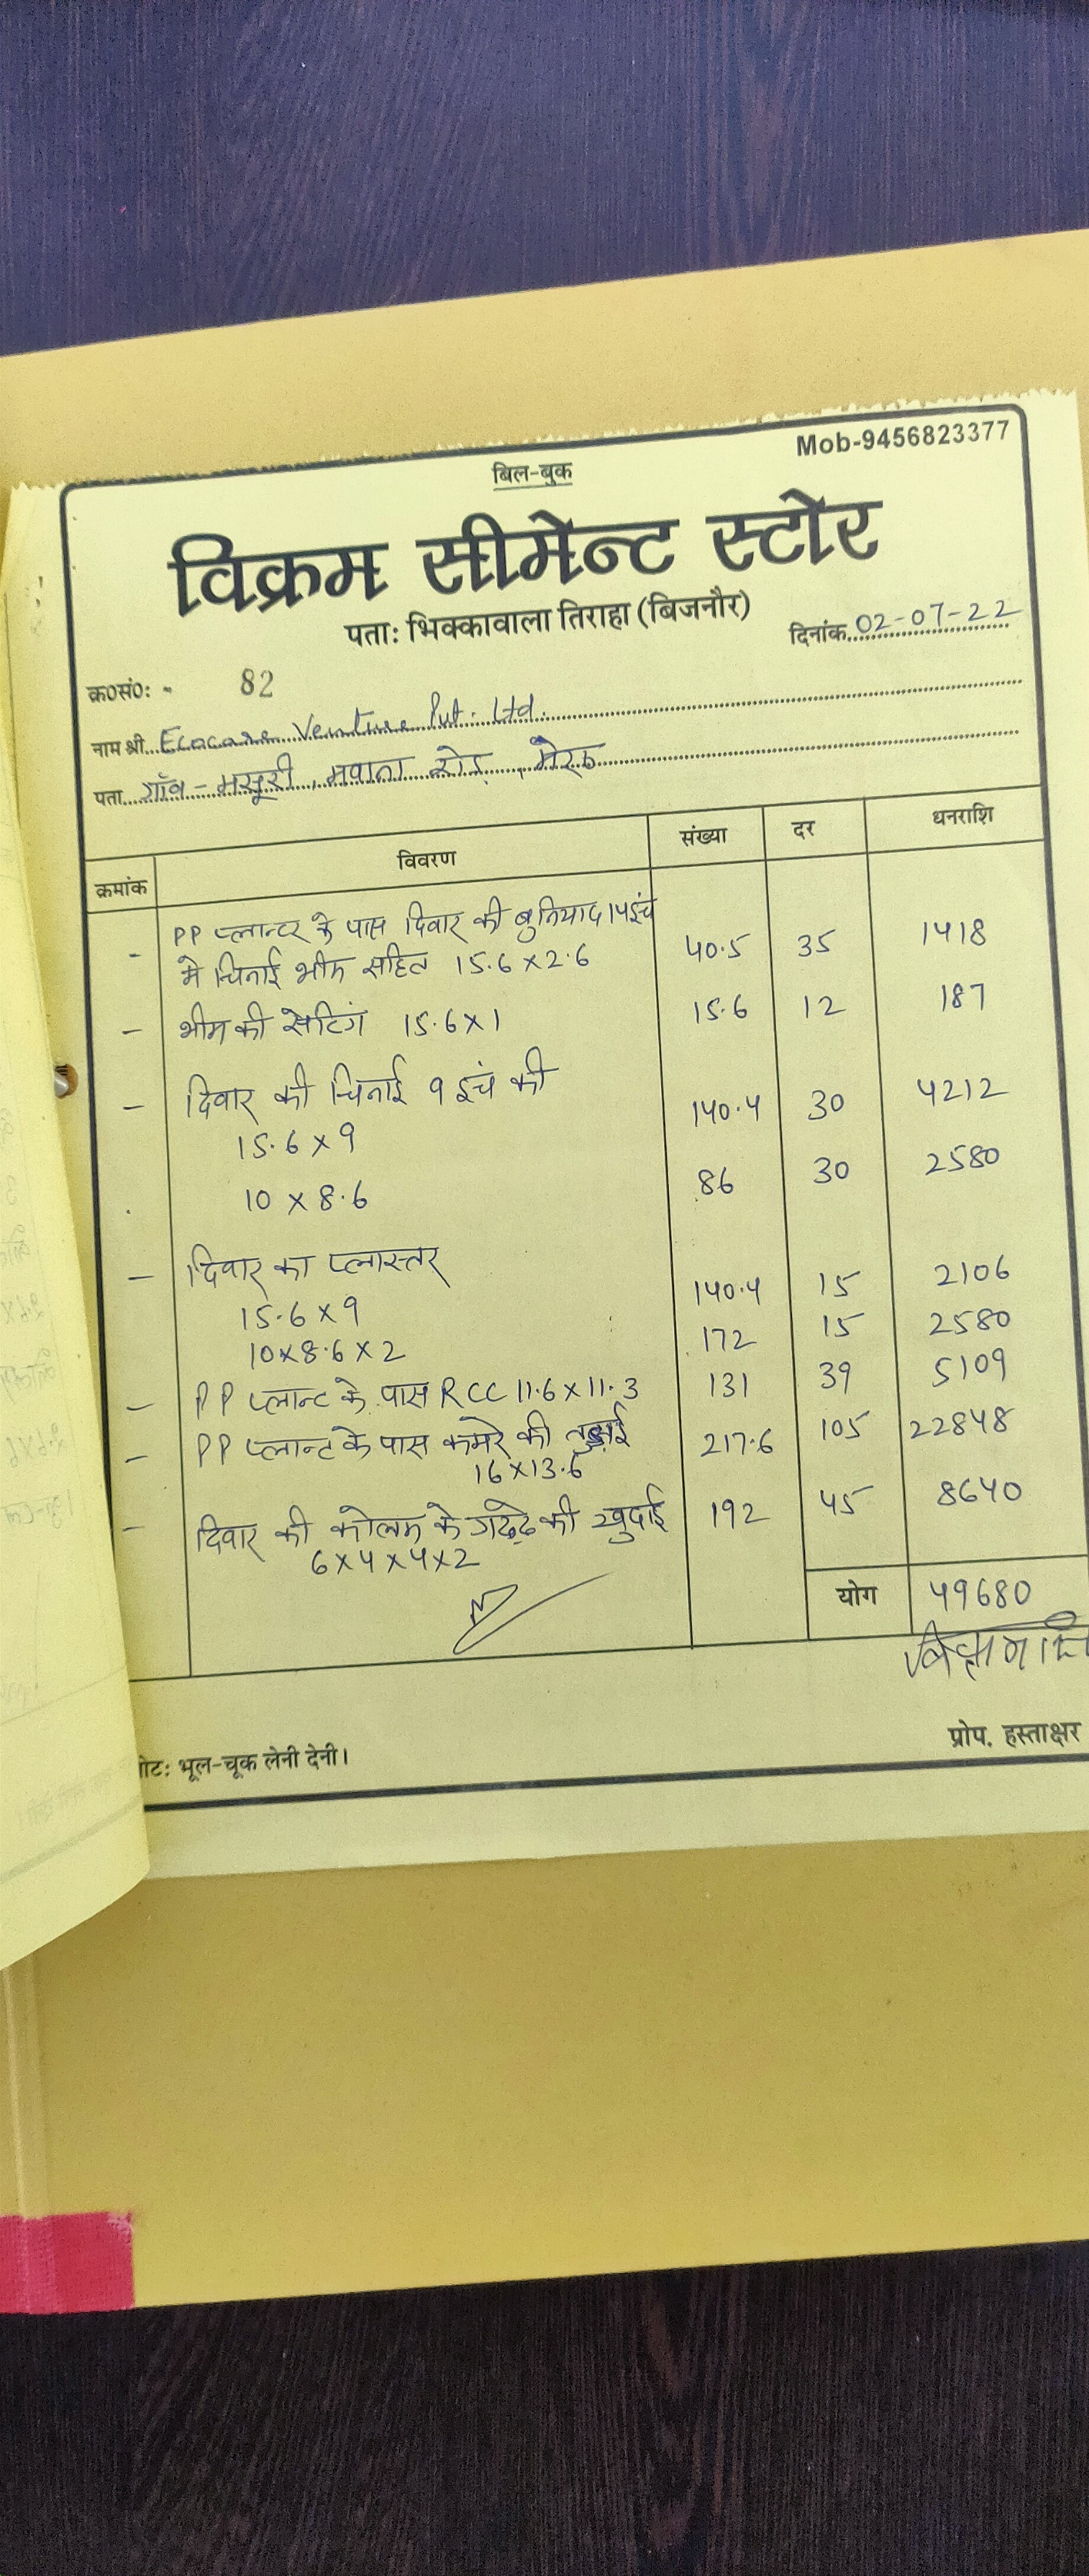 Mob-9456823377
बिल-बुक
विक्रम सीमेन्ट स्टोर
पता: भिक्कावाला तिराहा (बिजनौर)
दिनांक 02-07-22
क्र0सं0: - 82
नाम श्री Ecocare Venture Pvt. Ltd.
पता गाँव - मसूरी, मवाना रोड़, मेरठ
क्रमांक विवरण संख्या दर धनराशि
- PP प्लान्ट के पास दिवार की बुनियाद 14 इंच
मे चिनाई भीम सहित 15.6 x 2.6 40.5 35 1418
- भीम की सेटिंग 15.6 x 1 15.6 12 187
- दिवार की चिनाई 9 इंच की
15.6 x 9 140.4 30 4212
10 x 8.6 86 30 2580
- दिवार का प्लास्तर
15.6 x 9 140.4 15 2106
10 x 8.6 x 2 172 15 2580
- PP प्लान्ट के पास RCC 11.6 x 11.3 131 39 5109
- PP प्लान्ट के पास कमरे की 217.6 105 22848
16 x 13.6
- दिवार की कोलम के गढ्ढे की खुदाई 192 45 8640
6 x 4 x 4 x 2
योग 49680
प्रोप. हस्ताक्षर
नोट: भूल-चूक लेनी देनी।